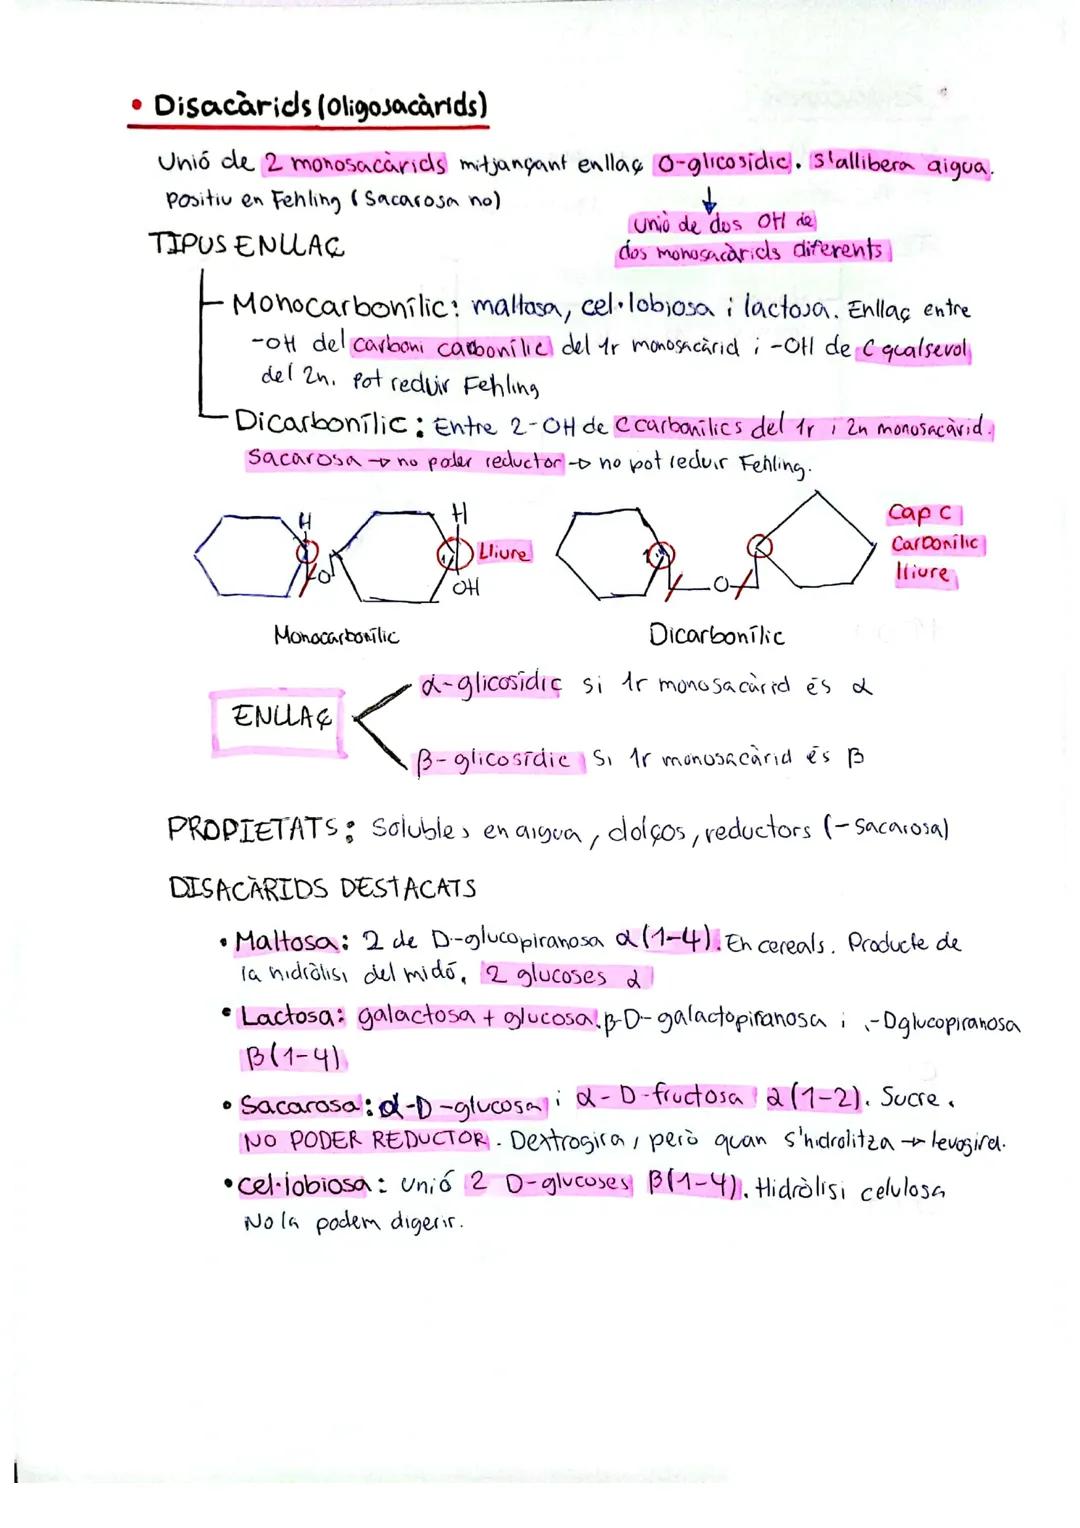 • Disacàrids (Oligosacàrids)
Unió de 2 monosacàrids mitjançant enllaç O-glicosídic. S'allibera aigua.
Positiu en Fehling (Sacarosa no)
Unió de dos OH de
dos monosacàrids diferents
TIPUS ENLLAÇ
Monocarbonílic: maltosa, cel·lobiosa i lactosa. Enllaç entre
-OH del carboni carbonílic del 1r monosacàrid i -OH de C qualsevol
del 2n. Pot reduir Fehling
Dicarbonílic: Entre 2-OH de C carbonílics del 1r i 2n monosacàrid.
Sacarosa → no poder reductor → no pot reduir Fehling.
H
H
O
1
Lliure
OH
1
O
Cap C
Carbonílic
lliure
Monocarbonílic
Dicarbonílic
α-glicosídic si 1r monosacàrid és α
ENLLAÇ
β-glicosídic si 1r monosacàrid és β
PROPIETATS: Solubles en aigua, dolços, reductors (-Sacarosa)
DISACÀRIDS DESTACATS
• Maltosa: 2 de D-glucopiranosa α(1-4). En cereals. Producte de
la hidròlisi del midó. 2 glucoses α
• Lactosa: galactosa + glucosa. β-D-galactopiranosa i -Dglucopiranosa
β(1-4)
• Sacarosa: α-D-glucosa i α-D-fructosa α(1-2). Sucre.
NO PODER REDUCTOR. Dextrogira, però quan s'hidrolitza → levogira.
• cel·lobiosa: Unió 2 D-glucoses β(1-4). Hidròlisi celulosa
No la podem digerir.